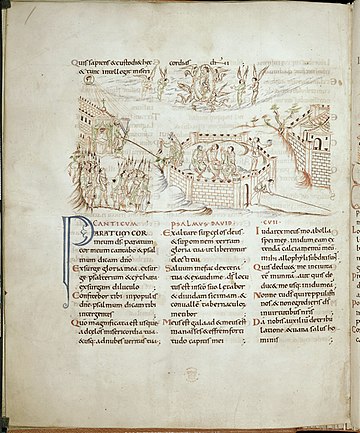 Quis sapiens & custodi& hęc
& tunc intelleget miseri
cordias dñi
CANTICUM PSALMUS DAVID CVII
PARATUM COR
meum ds paratum
cor meum cantabo & psal
mum dicam dño
Exsurge gloria mea exsur
ge psalterium & cythara
exsurgam diluculo
Confitebor tibi in populis
dñe psalmum dicam tibi
inter gentes
Quia magnificata est usque
ad celos misericordia tua
& usque ad nubes veritas tua
Exaltare super celos deus
& super omnem terram
gloria tua ut liberentur
electi tui
Salvum me fac dextera
tua & exaudi me ds locu
tus est in sco suo laetabor
& dividam siccimam &
convallem tabernaculorum
metibor
Meus est galaad & meus est
manasses & effrem forti
tudo capitis mei
Iuda rex meus moab
spei meae in idumeam ex
tendam calciamentum meum
mihi allophyli subditi sunt
Quis deducet me in civita
tem munitam aut quis de
duc& me usque in idumeam
Nonne tu ds qui reppulisti
nos & non egredieris ds
in virtutibus nris
Da nobis auxiliu de tribu
latione & vana salus ho
minis